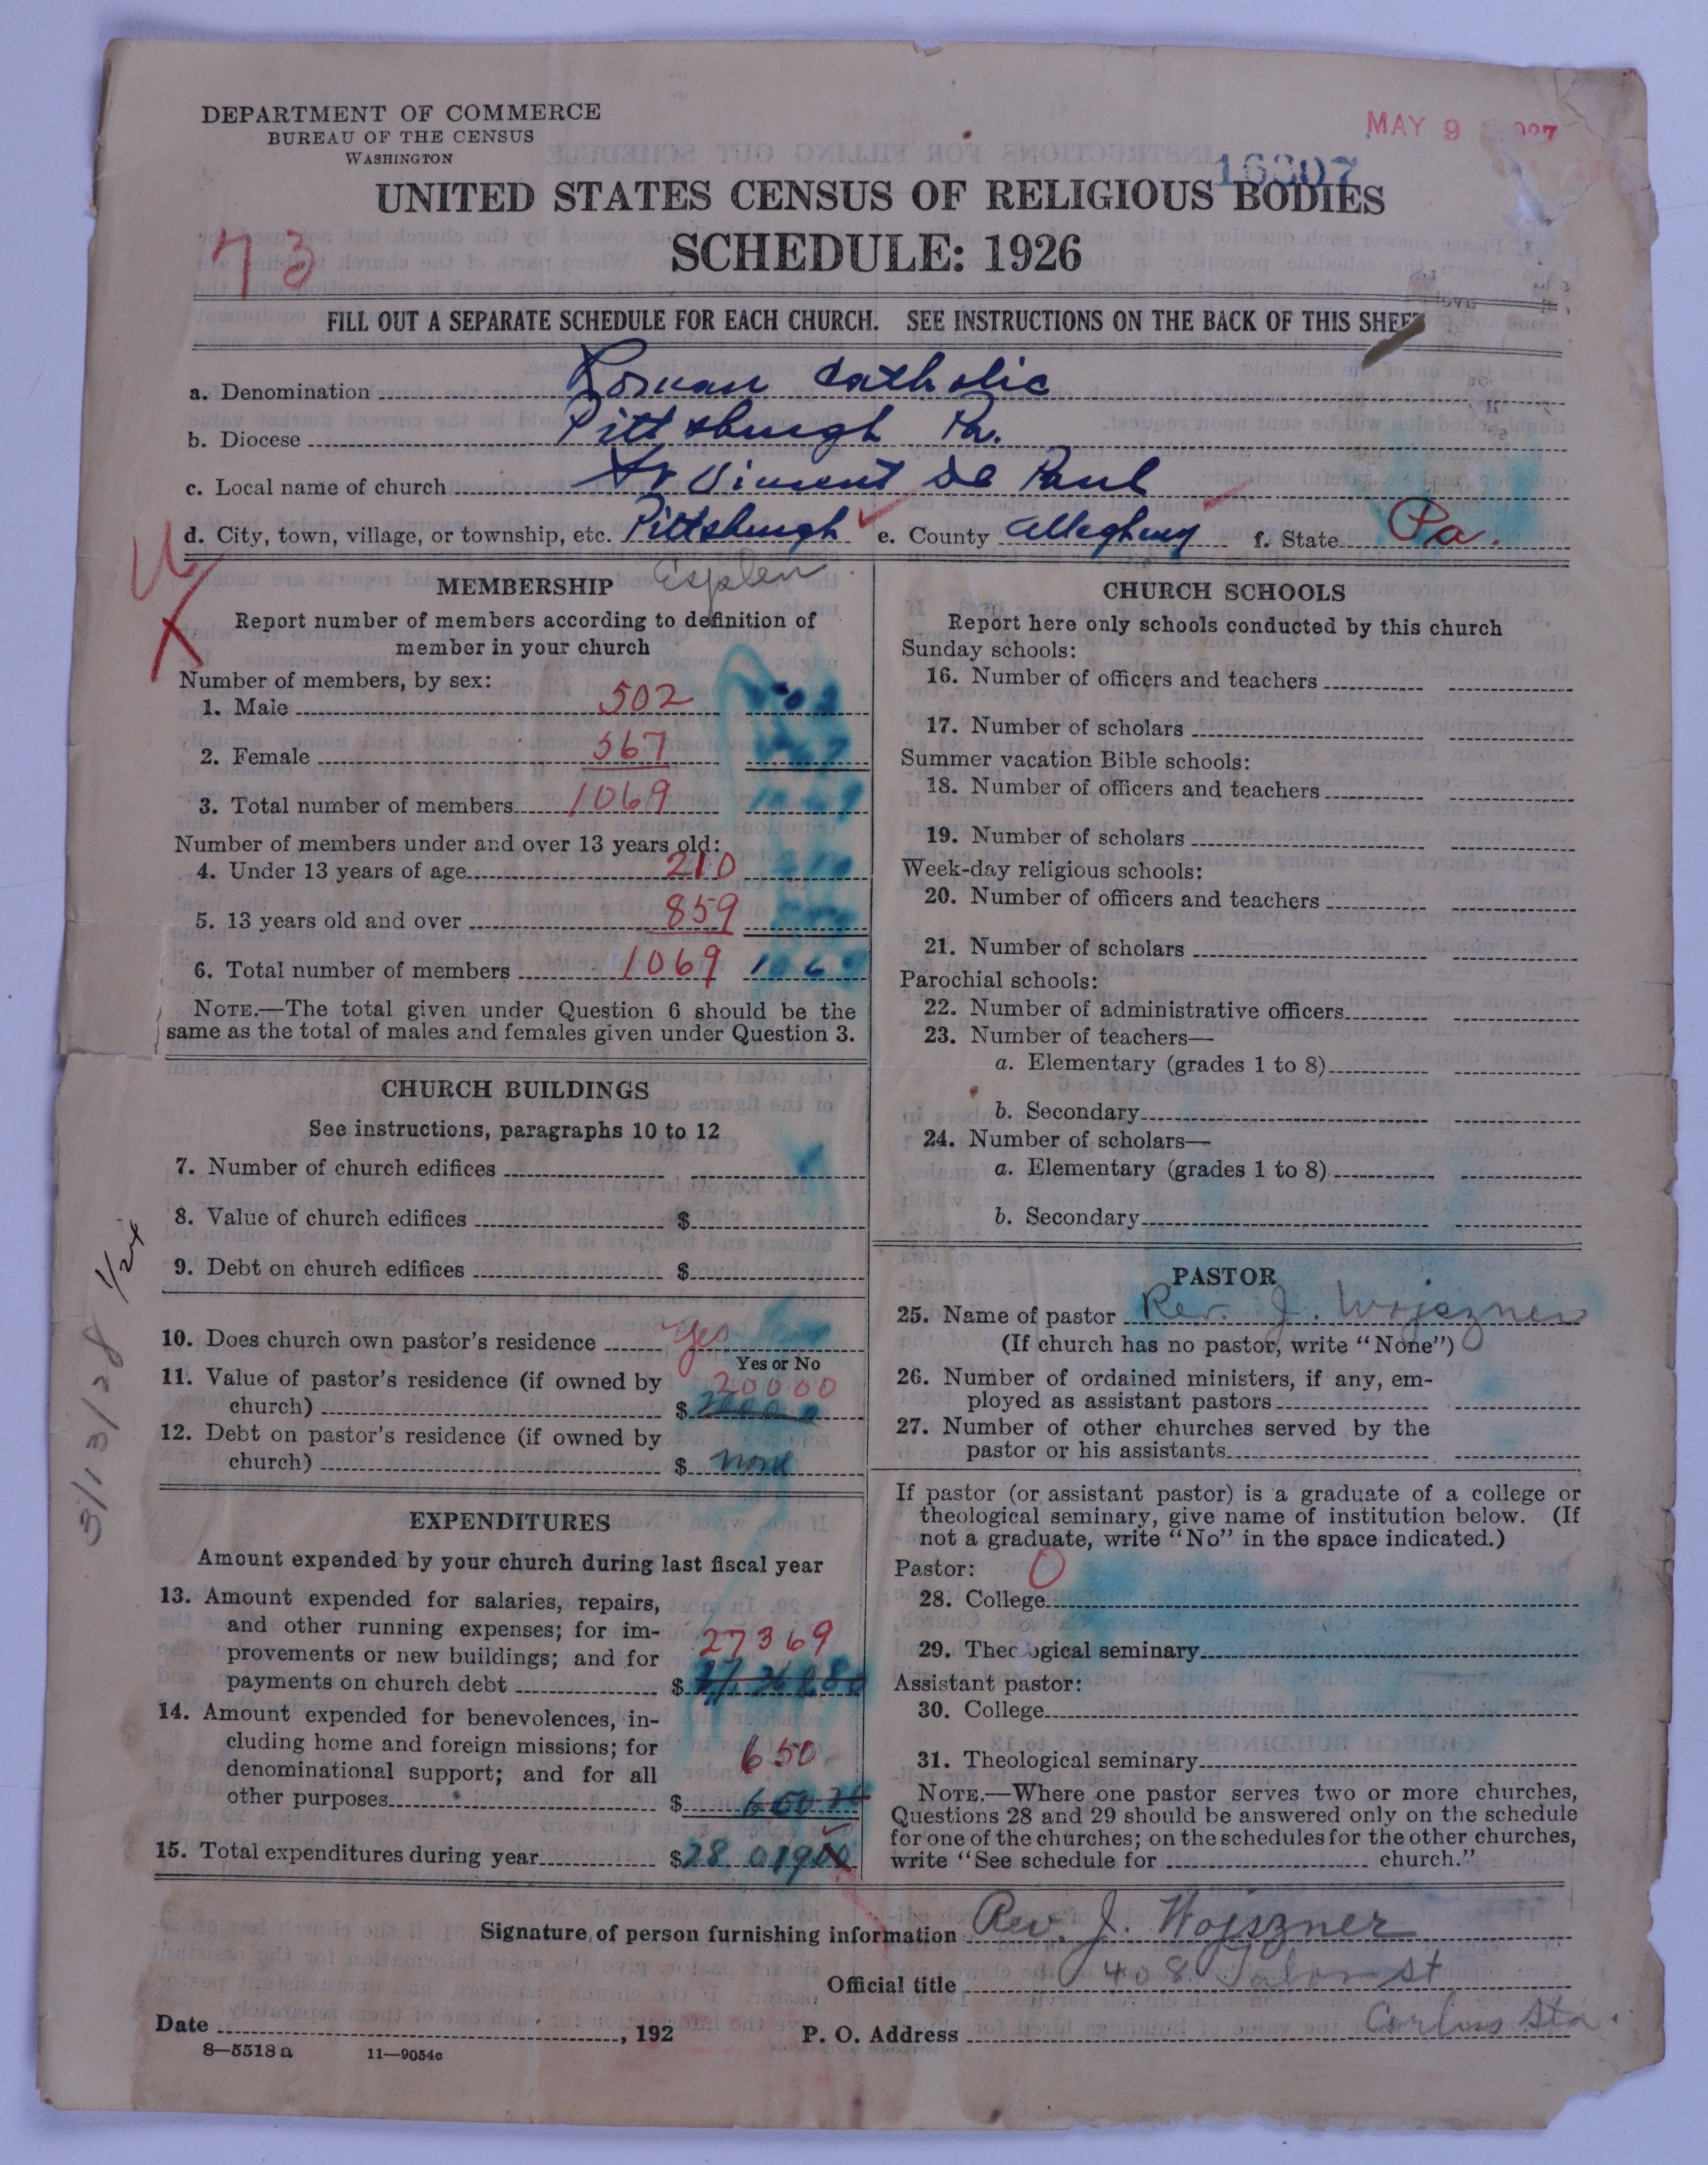 DEPARTMENT OF COMMERCE
BUREAU OF THE CENSUS
WASHINGTON
MAY 9
16307
UNITED STATES CENSUS OF RELIGIOUS BODIES
SCHEDULE: 1926
73
FILL OUT A SEPARATE SCHEDULE FOR EACH CHURCH. SEE INSTRUCTIONS ON THE BACK OF THIS SHEET
a. Denomination Roman Catholic
b. Diocese Pittsburgh Pa.
c. Local name of church St Vincent De Paul
d. City, town, village, or township, etc. Pittsburgh e. County Allegheny f. State Pa.
MEMBERSHIP Esplen
Report number of members according to definition of
member in your church
Number of members, by sex:
1. Male 502 502
2. Female 567 567
3. Total number of members 1069 1069
Number of members under and over 13 years old:
4. Under 13 years of age 210 210
5. 13 years old and over 859
6. Total number of members 1069 1069
NOTE.—The total given under Question 6 should be the
same as the total of males and females given under Question 3.
CHURCH BUILDINGS
See instructions, paragraphs 10 to 12
7. Number of church edifices
8. Value of church edifices $
9. Debt on church edifices $
10. Does church own pastor's residence yes
Yes or No
11. Value of pastor's residence (if owned by 20000
church) $ 20000
12. Debt on pastor's residence (if owned by
church) $ none
EXPENDITURES
Amount expended by your church during last fiscal year
13. Amount expended for salaries, repairs,
and other running expenses; for im-
provements or new buildings; and for 27369
payments on church debt $
14. Amount expended for benevolences, in-
cluding home and foreign missions; for 650
denominational support; and for all
other purposes $
15. Total expenditures during year $ 28 019
3/13/28
CHURCH SCHOOLS
Report here only schools conducted by this church
Sunday schools:
16. Number of officers and teachers
17. Number of scholars
Summer vacation Bible schools:
18. Number of officers and teachers
19. Number of scholars
Week-day religious schools:
20. Number of officers and teachers
21. Number of scholars
Parochial schools:
22. Number of administrative officers
23. Number of teachers—
a. Elementary (grades 1 to 8)
b. Secondary
24. Number of scholars—
a. Elementary (grades 1 to 8)
b. Secondary
PASTOR
25. Name of pastor Rev. J. Wojszner
(If church has no pastor, write "None")
26. Number of ordained ministers, if any, em-
ployed as assistant pastors
27. Number of other churches served by the
pastor or his assistants
If pastor (or assistant pastor) is a graduate of a college or
theological seminary, give name of institution below. (If
not a graduate, write "No" in the space indicated.)
Pastor: 0
28. College
29. Theological seminary
Assistant pastor:
30. College
31. Theological seminary
NOTE.—Where one pastor serves two or more churches,
Questions 28 and 29 should be answered only on the schedule
for one of the churches; on the schedules for the other churches,
write "See schedule for church."
Signature of person furnishing information Rev. J. Wojszner
Official title 408 St
Date , 192 P. O. Address Corliss Sta.
8—5518a 11—9054c